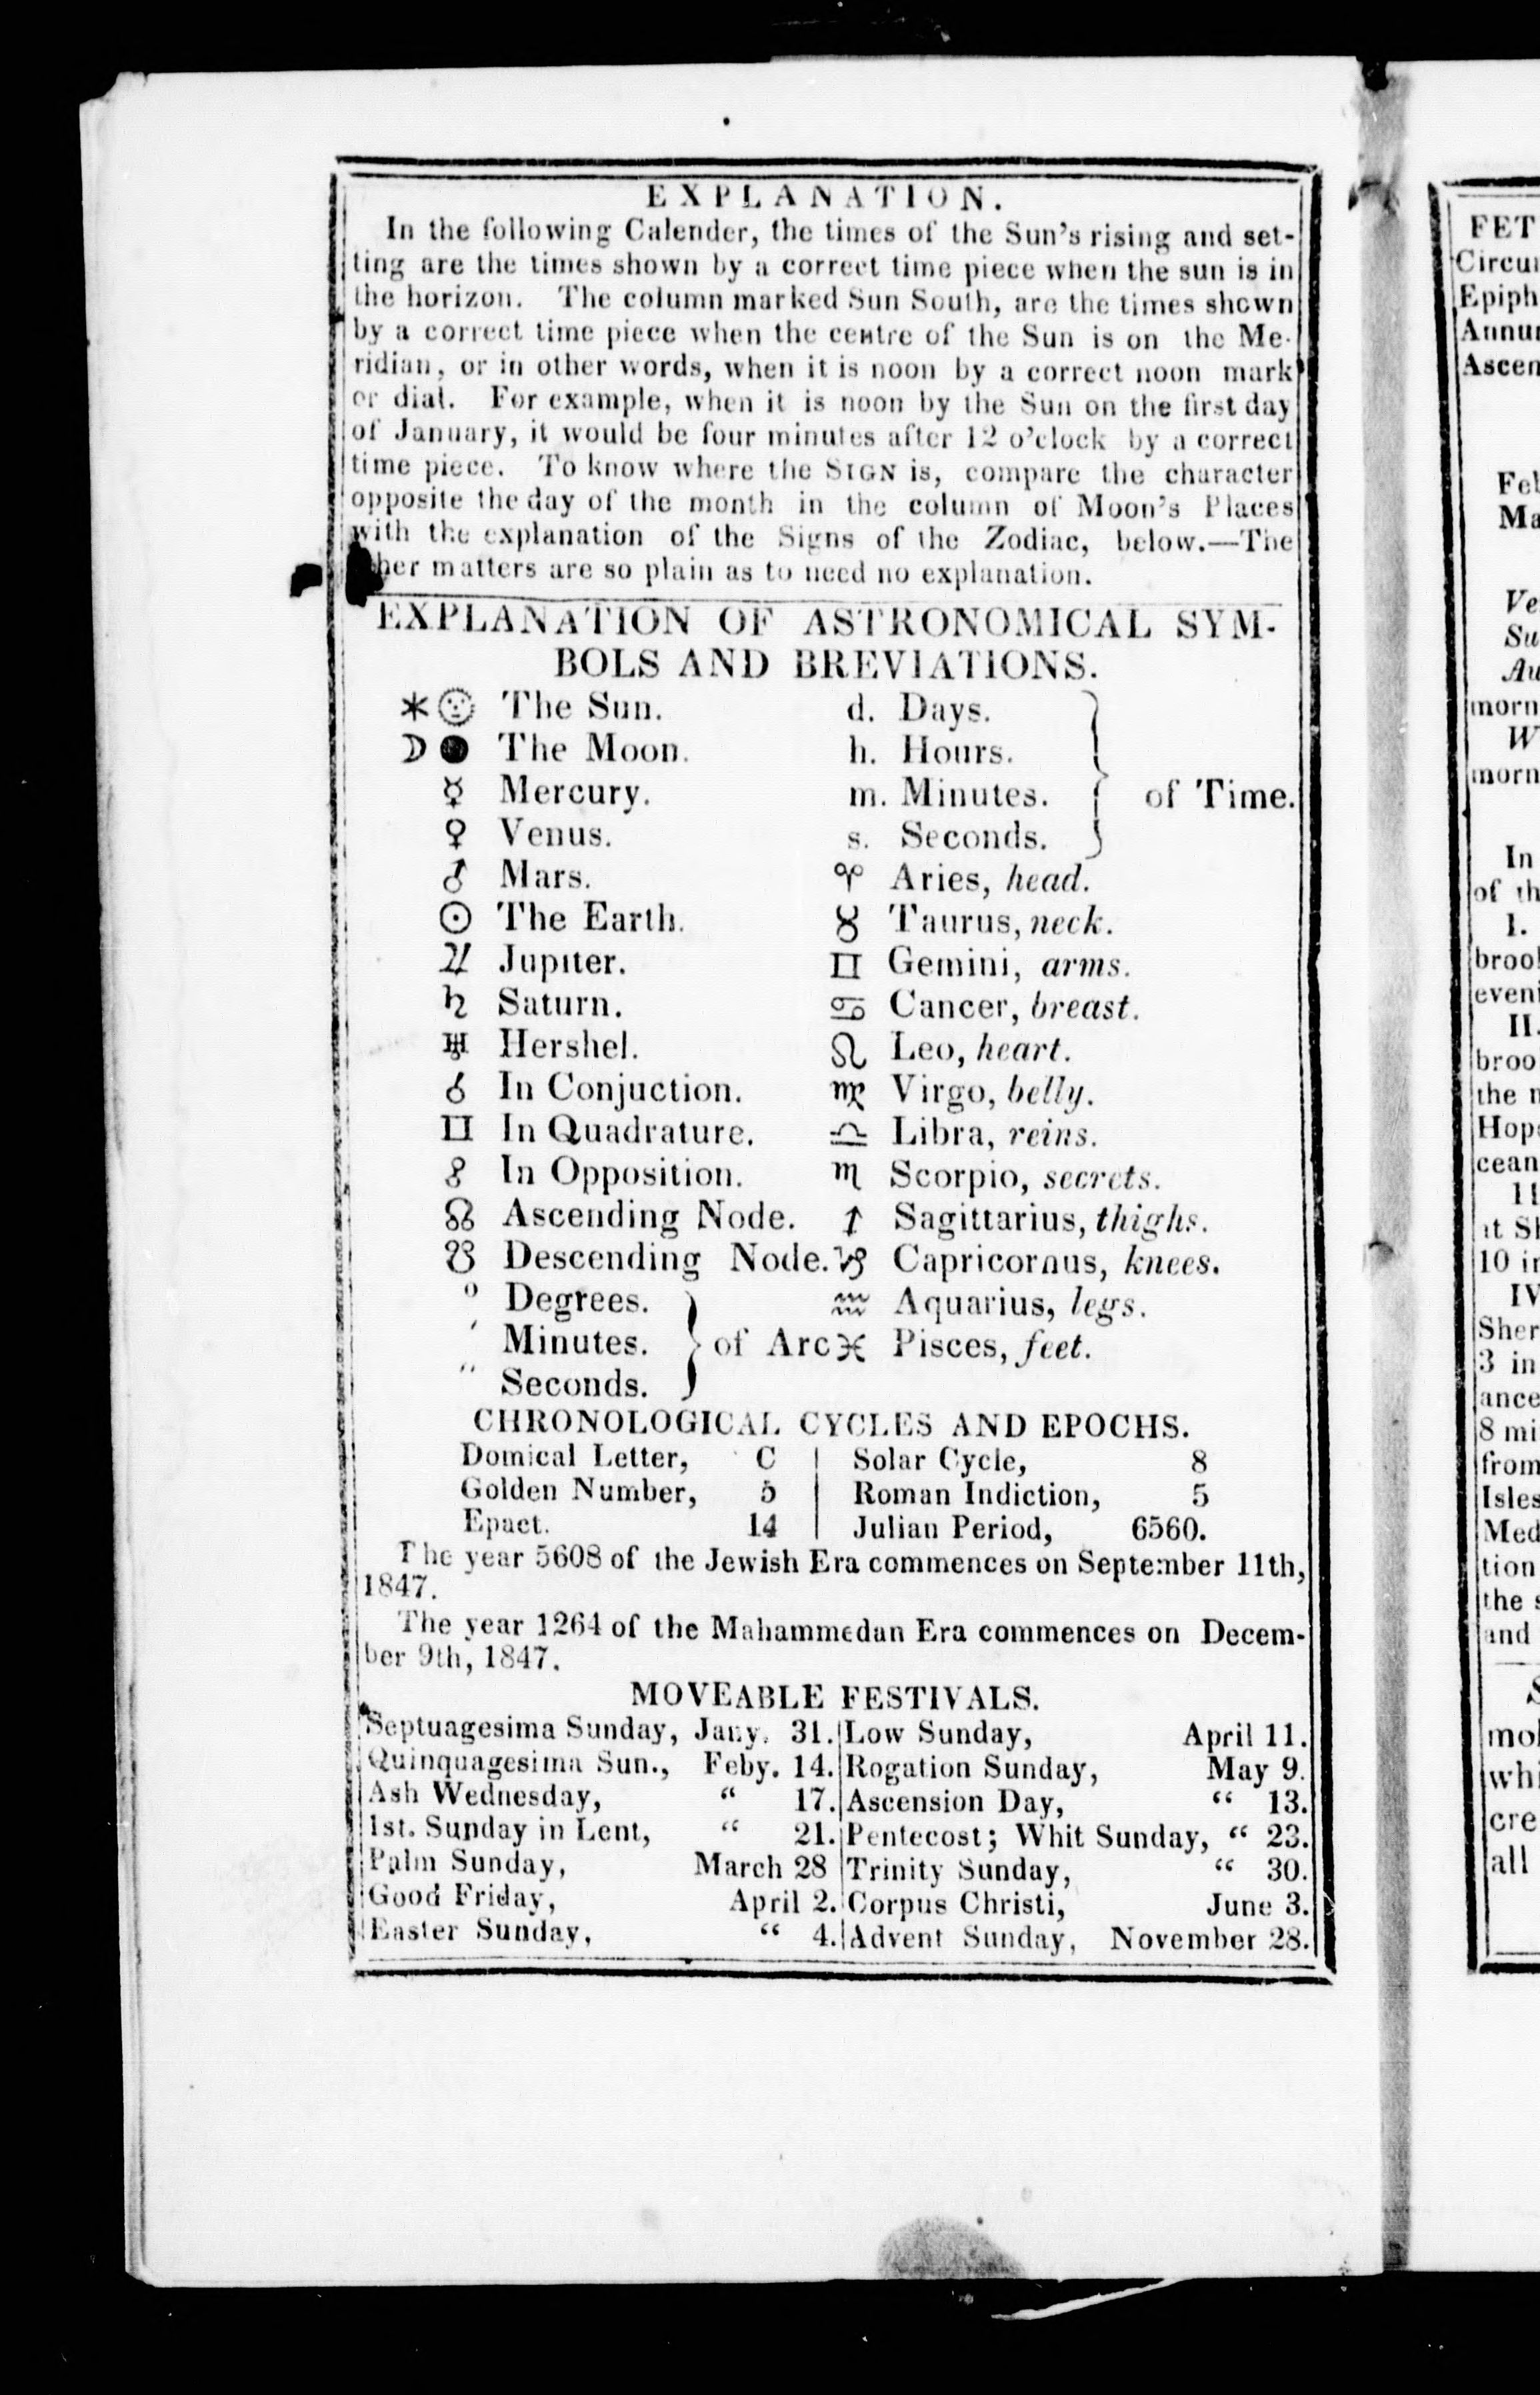 EXPLANATION.
In the following Calender, the times of the Sun's rising and set-
ting are the times shown by a correct time piece when the sun is in
the horizon. The column marked Sun South, are the times shown
by a correct time piece when the centre of the Sun is on the Me-
ridian, or in other words, when it is noon by a correct noon mark
or dial. For example, when it is noon by the Sun on the first day
of January, it would be four minutes after 12 o'clock by a correct
time piece. To know where the SIGN is, compare the character
opposite the day of the month in the column of Moon's Places
with the explanation of the Signs of the Zodiac, below.—The
her matters are so plain as to need no explanation.
EXPLANATION OF ASTRONOMICAL SYM-
BOLS AND BREVIATIONS.
The Sun. d. Days.
☽ The Moon. h. Hours.
☿ Mercury. m. Minutes. of Time.
♀ Venus. s. Seconds.
♂ Mars. ♈ Aries, head.
☉ The Earth. ♉ Taurus, neck.
♃ Jupiter. ♊ Gemini, arms.
♄ Saturn. ♋ Cancer, breast.
♅ Hershel. ♌ Leo, heart.
☌ In Conjuction. ♍ Virgo, belly.
In Quadrature. ♎ Libra, reins.
☍ In Opposition. ♏ Scorpio, secrets.
☊ Ascending Node. ♐ Sagittarius, thighs.
☋ Descending Node. ♑ Capricornus, knees.
° Degrees. ♒ Aquarius, legs.
′ Minutes. of Arc ♓ Pisces, feet.
″ Seconds.
CHRONOLOGICAL CYCLES AND EPOCHS.
Domical Letter, C Solar Cycle, 8
Golden Number, 5 Roman Indiction, 5
Epact. 14 Julian Period, 6560.
The year 5608 of the Jewish Era commences on September 11th,
1847.
The year 1264 of the Mahammedan Era commences on Decem-
ber 9th, 1847.
MOVEABLE FESTIVALS.
Septuagesima Sunday, Jany. 31. Low Sunday, April 11.
Quinquagesima Sun., Feby. 14. Rogation Sunday, May 9.
Ash Wednesday, " 17. Ascension Day, " 13.
1st. Sunday in Lent, " 21. Pentecost; Whit Sunday, " 23.
Palm Sunday, March 28 Trinity Sunday, " 30.
Good Friday, April 2. Corpus Christi, June 3.
Easter Sunday, " 4. Advent Sunday, November 28.
FET
Circu
Epiph
Annu
Ascen
Fel
Ma
Ve
Su
Au
morn
W
morn
In
of th
I.
broo
eveni
II.
broo
the
Hop
cean
at Sh
10 in
IV
Sher
3 in
ance
8 mi
from
Isles
Med
tion
the s
and
mol
whi
cre
all